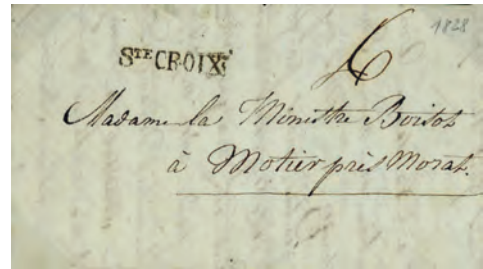 1828
STE CROIX
6
Madame la Ministre Boitot
à Motier près Morat.